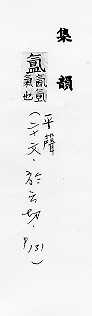 集韻
氳
氤氳
氣也
平聲
(二十文·於云切·P131)